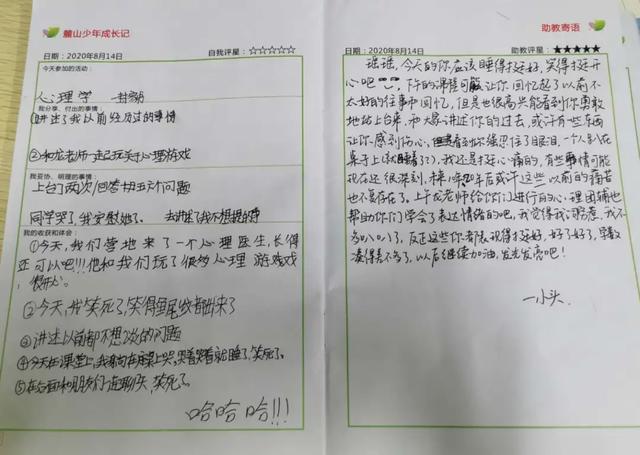 麓山少年成长记
日期：2020年8月14日 自我评星：☆☆☆☆☆
今天参加的活动：
心理学
我分享、付出的事情：
①讲述了我以前经历过的事情
②和龙老师一起玩关于心理游戏
我妥协、明理的事情：
上台了两次/回答
个问题
同学哭了，我安慰她。
我的收获和体会：
①今天，我们营地来了一个心理医生，长得
还可以吧!!!他和我们玩了很多心理游戏，
很开心。
②今天，我笑死了，笑得鱼尾纹都出来了
③讲述以前都不想说的问题
④今天在课堂上，我
桌上哭，哭着哭着就睡了，笑死了。
⑤在台面和朋友们一起聊天，笑死了。
哈哈哈!!!
助教寄语
日期：2020年8月14日 助教评星：★★★★★
瑶瑶，今天的你应该睡得挺好，笑得挺开
心吧，下午的课程可能让你回忆起了以前不
太好的往事和回忆，但是也很高兴能看到你勇敢
地站上台来，和大家讲述你的过去，或许有些东西
让你感到伤心，
看到你强忍住了眼泪，一个人趴在
桌子上
，我还是挺心痛的，有些事情可能
现在还很深刻，
年后或许这些以前的痛苦
也不复存在了。上午龙老师给你们进行的心理团辅也
帮助你们学会了表达情绪的吧，我觉得我
，我不
多
了，反正这些你都表现得挺好，好了好了，字数
凑得差不多了，以后继续加油，发光发亮吧！
一小头